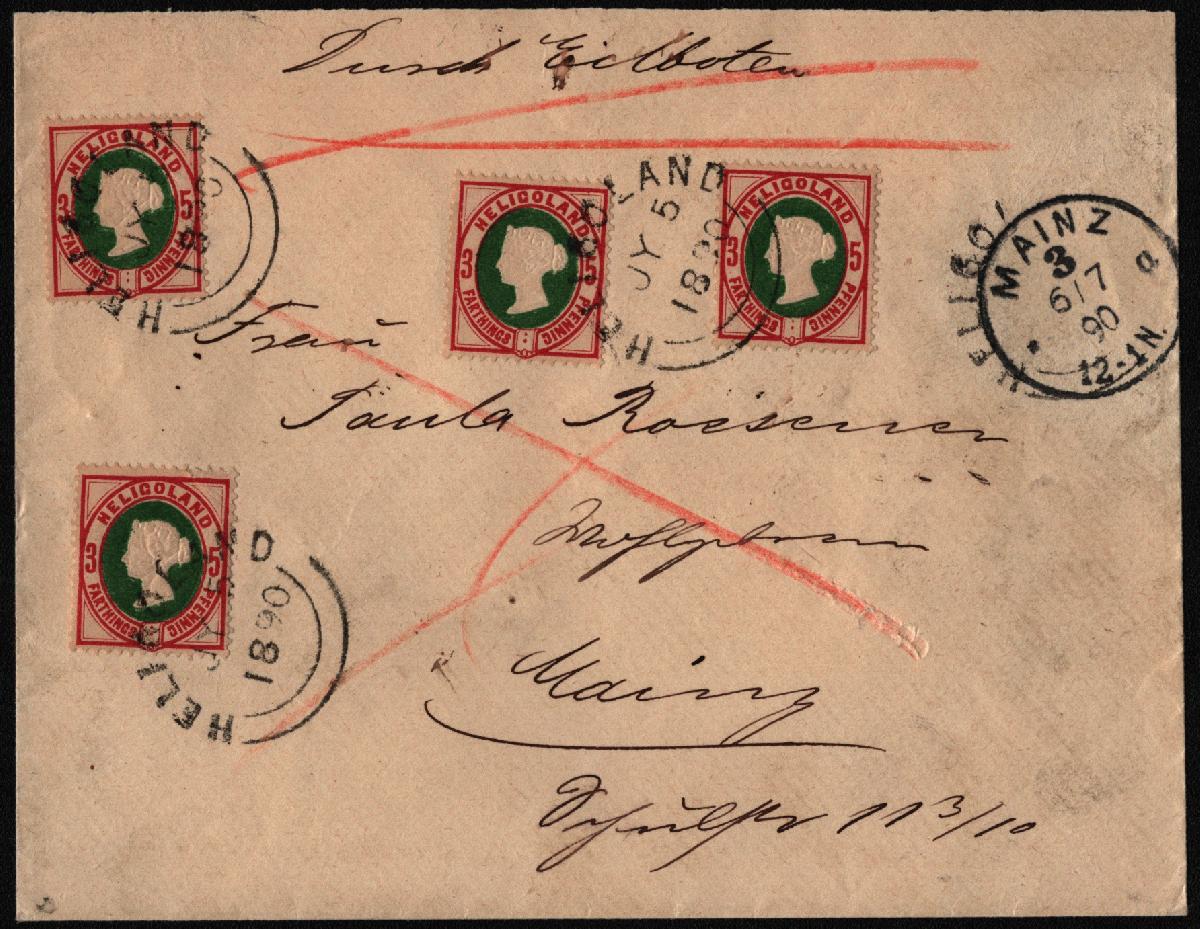 Durch Eilboten
HELIGOLAND
3 5
FARTHINGS PFENNIG
HELIGOLAND
JY 5
1890
HELIGOLAND
3 5
FARTHINGS PFENNIG
HELIGOLAND
JY 5
1890
HELIGOLAND
3 5
FARTHINGS PFENNIG
HELIGO
MAINZ
3
6/7
90
12-1N.
a
Frau
Paula
Mainz
HELIGOLAND
3 5
FARTHINGS PFENNIG
HELIGOLAND
JY 5
1890
Schulstr 11 3/10